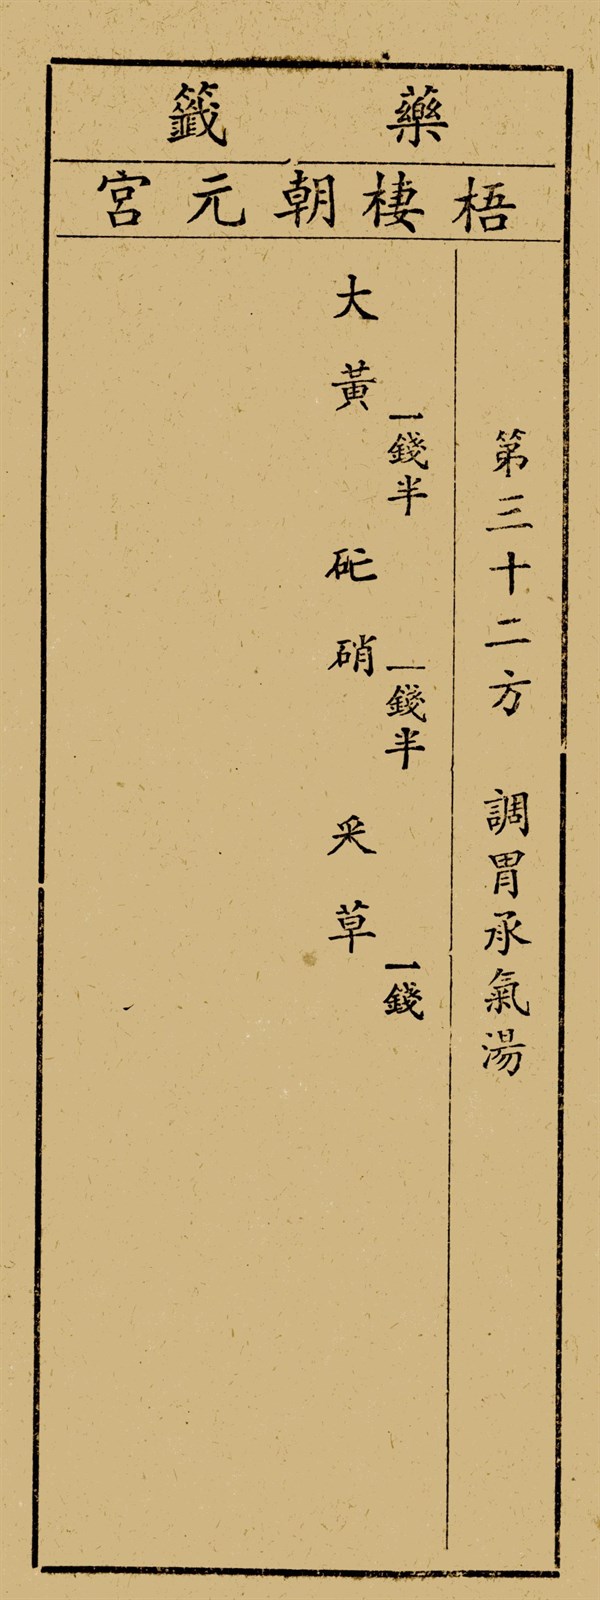 藥籤
梧棲朝元宮
第三十二方 調胃承氣湯
大黃一錢半 砨硝一錢半 采草一錢